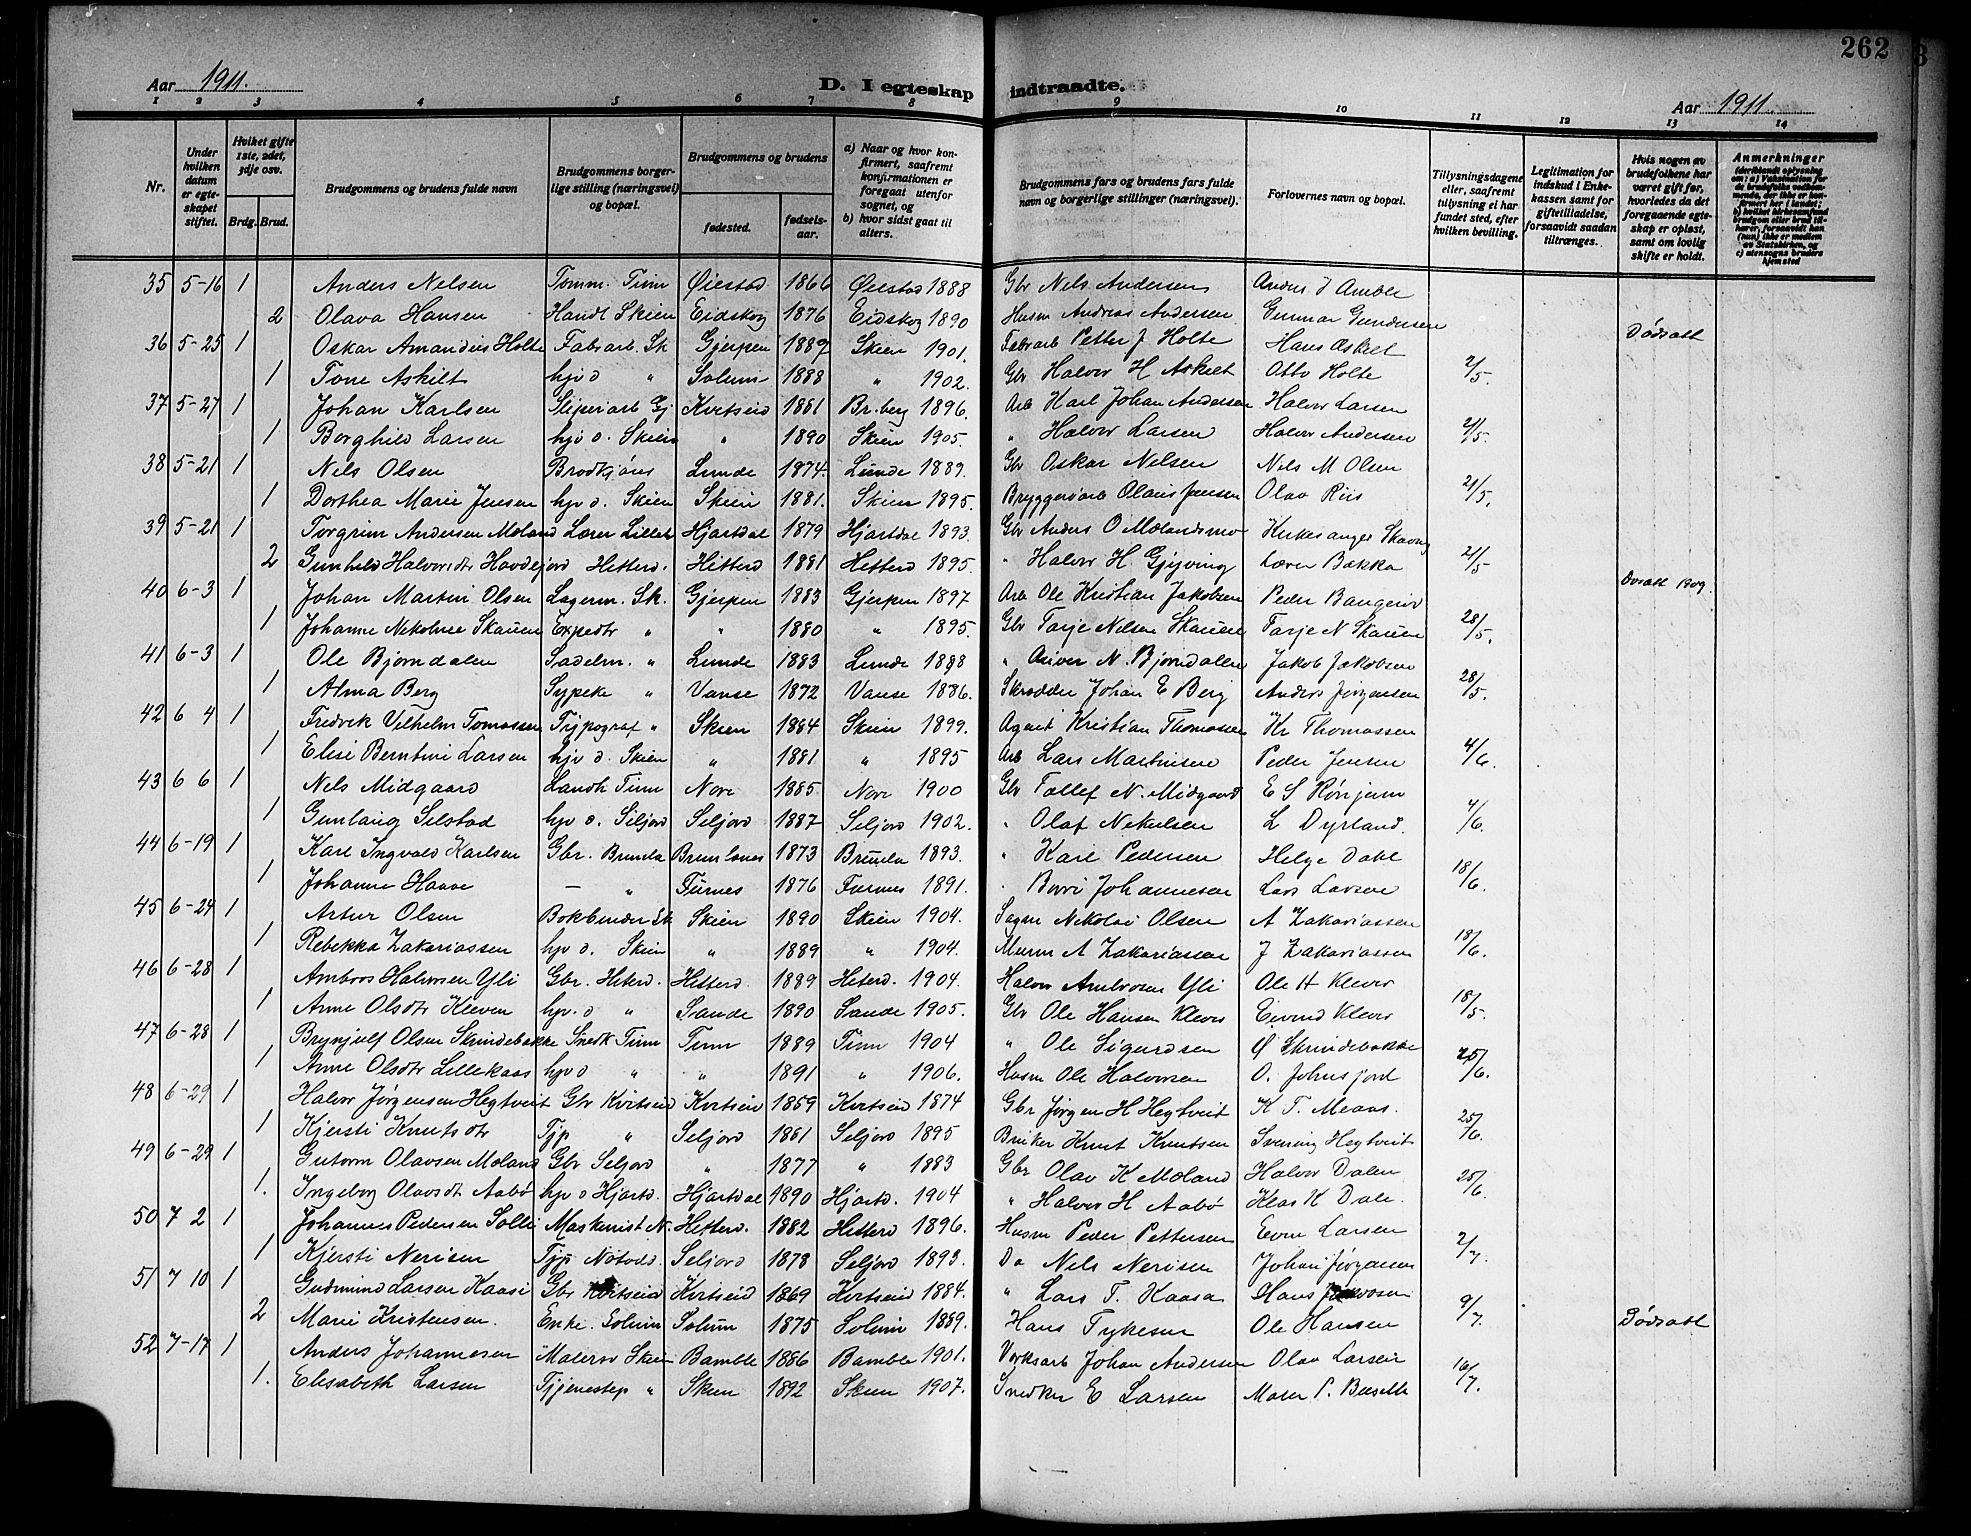 262
Aar 1911. D. I egteskap indtraadte. Aar 1911.
1 2 3 4 5 6 7 8 9 10 11 12 13 14
Nr. | Under hvilken datum er egteskapet stiftet. | Hvilket gifte 1ste, 2det, 3dje osv. Brdg. Brud. | Brudgommens og brudens fulde navn | Brudgommens borgerlige stilling (næringsvei) og bopæl. | Brudgommens og brudens fødested. fødselsaar. | a) Naar og hvor konfirmert, saafremt konfirmationen er foregaat utenfor sognet, og b) hvor sidst gaat til alters. | Brudgommens fars og brudens fars fulde navn og borgerlige stillinger (næringsvei). | Forlovernes navn og bopæl. | Tillysningsdagene eller, saafremt tillysning ei har fundet sted, efter hvilken bevilling. | Legitimation for indskud i Enkekassen samt for giftetilladelse, forsaavidt saadan tiltrænges. | Hvis nogen av brudefolkene har været gift før, hvorledes da det foregaaende egteskap er opløst, samt om lovlig skifte er holdt. | Anmerkninger (deriblandt oplysning om: a) Vaksination for de brudefolks vedkommende, der ikke er konfirmert her i landet; b) hvilket kirkesamfund brudgom eller brud tilhører, forsaavidt han (hun) ikke er medlem av Statskirken, og c) utensogns bruders hjemsted
35 5-16 1 Anders Nelsen Tømm. Tinn Øiestad 1866 Øiestad 1888 Gbr Nels Andersen Anders J Amble
2 Olava Hansen Handl Skien Eidskog 1876 Eidskog 1890 Husm Andreas Andersen Gunnar Gundersen Dødsatt
36 5-25 1 Oskar Amandus Holte Fabrarb. Sk Gjerpen 1889 Skien 1901. Fabrarb Petter J Holte Hans Askilt
1 Tone Askilt hjv d " Solum 1888 " 1902. Gbr Halvor H Askilt Otto Holte 2/5.
37 5-27 1 Johan Karlsen Sliperiarb Gj Kvitseid 1881 Br.berg 1896. Arb Karl Johan Andersen Halvor Larsen
1 Borghild Larsen hjv d. Skien " 1890 Skien 1905. " Halvor Larsen Halvor Andersen 21/5.
38 5-21 1 Nels Olsen Brodkjøre Lunde 1874. Lunde 1889. Gbr Oskar Nelsen Nels M Olsen
1 Dorthea Marie Jensen hjv d. Skien Skien 1881. Skien 1895. Bryggeriarb Olaus Jensen Olav Riis 21/5.
39 5-21 1 Torgrim Andersen Moland Lærer Lilleh Hjartdal 1879 Hjartdal 1893. Gbr Anders O Mølandsmo Kirkesanger Skavng
2 Gunhild Halvorsdtr Havdejord Hitterd. Hitterd 1881 Hitterd 1895. " Halvor H Gjejving Lærer Bakka 21/5
40 6-3 1 Johan Martin Olsen Lagerm. Sk. Gjerpen 1883 Gjerpen 1897 Arb Ole Kristian Jakobsen Peder Bangerød
1 Johanne Nekoline Skauen Expedtr " " 1880 " 1895. Gbr Tarje Nelsen Skauen Tarje N Skauen 28/5.
41 6-3 1 Ole Bjørndalen Sadelm. " Lunde 1883 Lunde 1898 " N. Bjørndalen Jakob Jakobsen
1 Alma Berg Sypeke " Vanse 1872 Vanse 1886. Skrædder Johan E Berg Anders Jørgensen 28/5.
42 6 4 1 Fredrik Vilhelm Tomassen Typograf " Skien 1884 Skien 1899. Agent Kristian Thomassen Kr Thomassen
1 Elise Berntine Larsen hjv d. Skien " 1881 " 1895 Arb Lars Martinsen Peder Jensen 4/6.
43 6 6 1 Nels Midgaard Landh Tinn Nore 1885 Nore 1900 Gbr Tollef N. Midgaard E S Rønjum
1 Gunlaug Silstad hjv d. Seljord Seljord 1887 Seljord 1902. " Olaf Nekulsen L Dyrland. 4/6.
44 6-19 1 Karl Ingvald Karlsen Gbr. Brunla Brunlanes 1873 Brunla 1893. " Karl Pedersen Helge Dahl
1 Johanne Haave — " Furnes 1876 Furnes 1891. " Berni Johannesen Lars Larsen 18/6.
45 6-24 1 Artur Olsen Bokbinder Sk Skien 1890 Skien 1904. Sagm Nikolai Olsen A Zakariassen
1 Rebekka Zakariassen hjv d. Skien " 1889 " 1904. Murm A Zakariassen J Zakariassen 18/6.
46 6-28 1 Ambros Halvorsen Yli Gbr. Hiterd. Hitterd 1889 Hiterd. 1904. Halvor Ambrosen Yli Ole H Kleven
1 Anne Olsdtr Kleven hjv. d " Sande 1890 Sande 1905. Gbr Ole Hansen Kleven Eivind Kleven 18/5.
47 6-28 1 Brynjulf Olsen Skrindebakke Snedk Tinn Tinn 1889 Tinn 1904 " Ole Sigurdsen Ø Skrindebakke
1 Anne Olsdtr Lillekaas hjv d " " 1891 " 1906. Husm Ole Halvorsen O. Johnsjord 25/6.
48 6-29 1 Halvor Jørgensen Hegtveit Gbr Kvitseid Kvitseid 1859 Kvitseid 1874 Gbr Jørgen H Hegtveit K T. Meaas.
1 Kjersti Knutsdtr Tjp " Seljord 1881 Seljord 1895 Bruker Knut Knutsen Svenung Hegtveit 25/6.
49 6-29 1 Gutorm Olavsen Moland Gbr Seljord " 1877 " 1883 Gbr Olav K Moland Halvor Dalen
1. Ingeborg Olavsdt Aabø hjv d Hjartd. Hjartdal 1890 Hjartd. 1904 " Halvor H Aabø Klas K Dale. 25/6.
50 7 2 1 Johannes Pedersen Solli Maskinist N. Hitterd. 1882 Hitterd 1896. Husm Peder Pettersen Even Larsen
1 Kjersti Nerisen Tjp Notodd. Seljord 1878 Seljord 1893. Do Nels Nerisen Johan Jørgensen 2/7.
51 7 10 1 Gudmund Larsen Kaasi Gbr Kvitseid Kvitseid 1869 Kvitseid 1884. " Lars T. Kaasa Hans
2 Marie Kristensen. Enke. Solum Solum 1875 Solum 1889. Hans Tykesen Ole Hansen 9/7. Dødsatt
52 7-17 1 Anders Johannesen Malersv Skien Bamble 1886 Bamble 1901. Verksarb Johan Andersen Olav Larsen
1. Elisabeth Larsen Tjenestep " Skien 1892 Skien 1907. Snedker E Larsen 16/7.